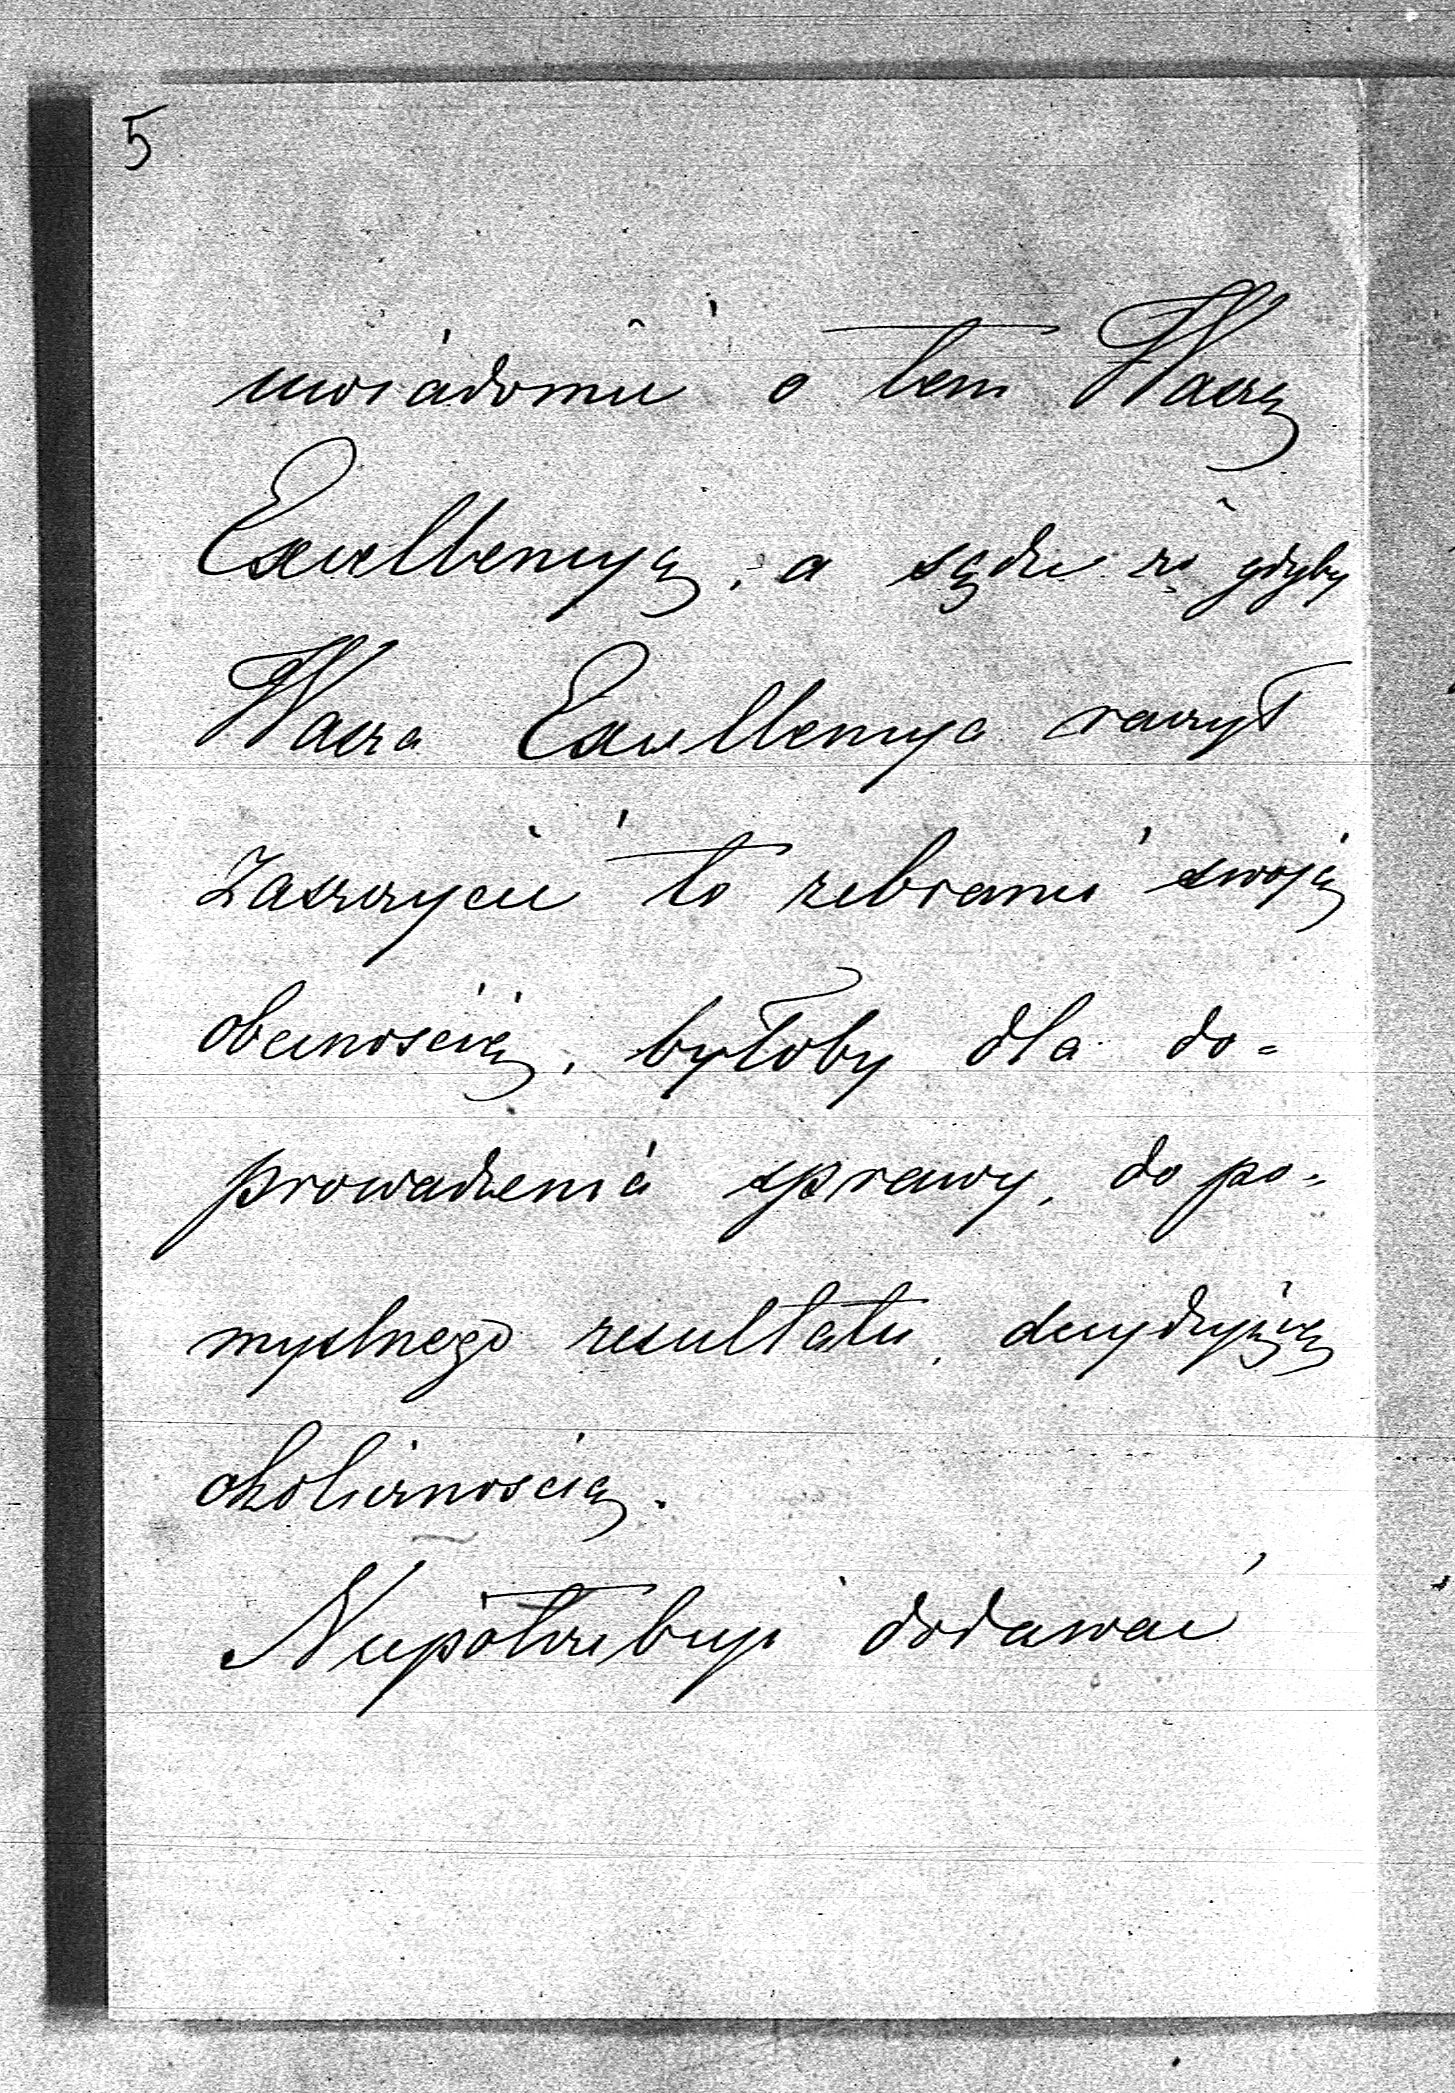 5
uwiadomić o tem Waszą
Excellencyą, a sądzę że gdyby
Wasza Excellencya raczył
Zaszczycić to zebranie swoją
obecnością, byłoby dla do=
prowadzenia sprawy, do po=
myslnego resultatu, decydującą
okolicznoscią.
Niepotrzebuję dodawać